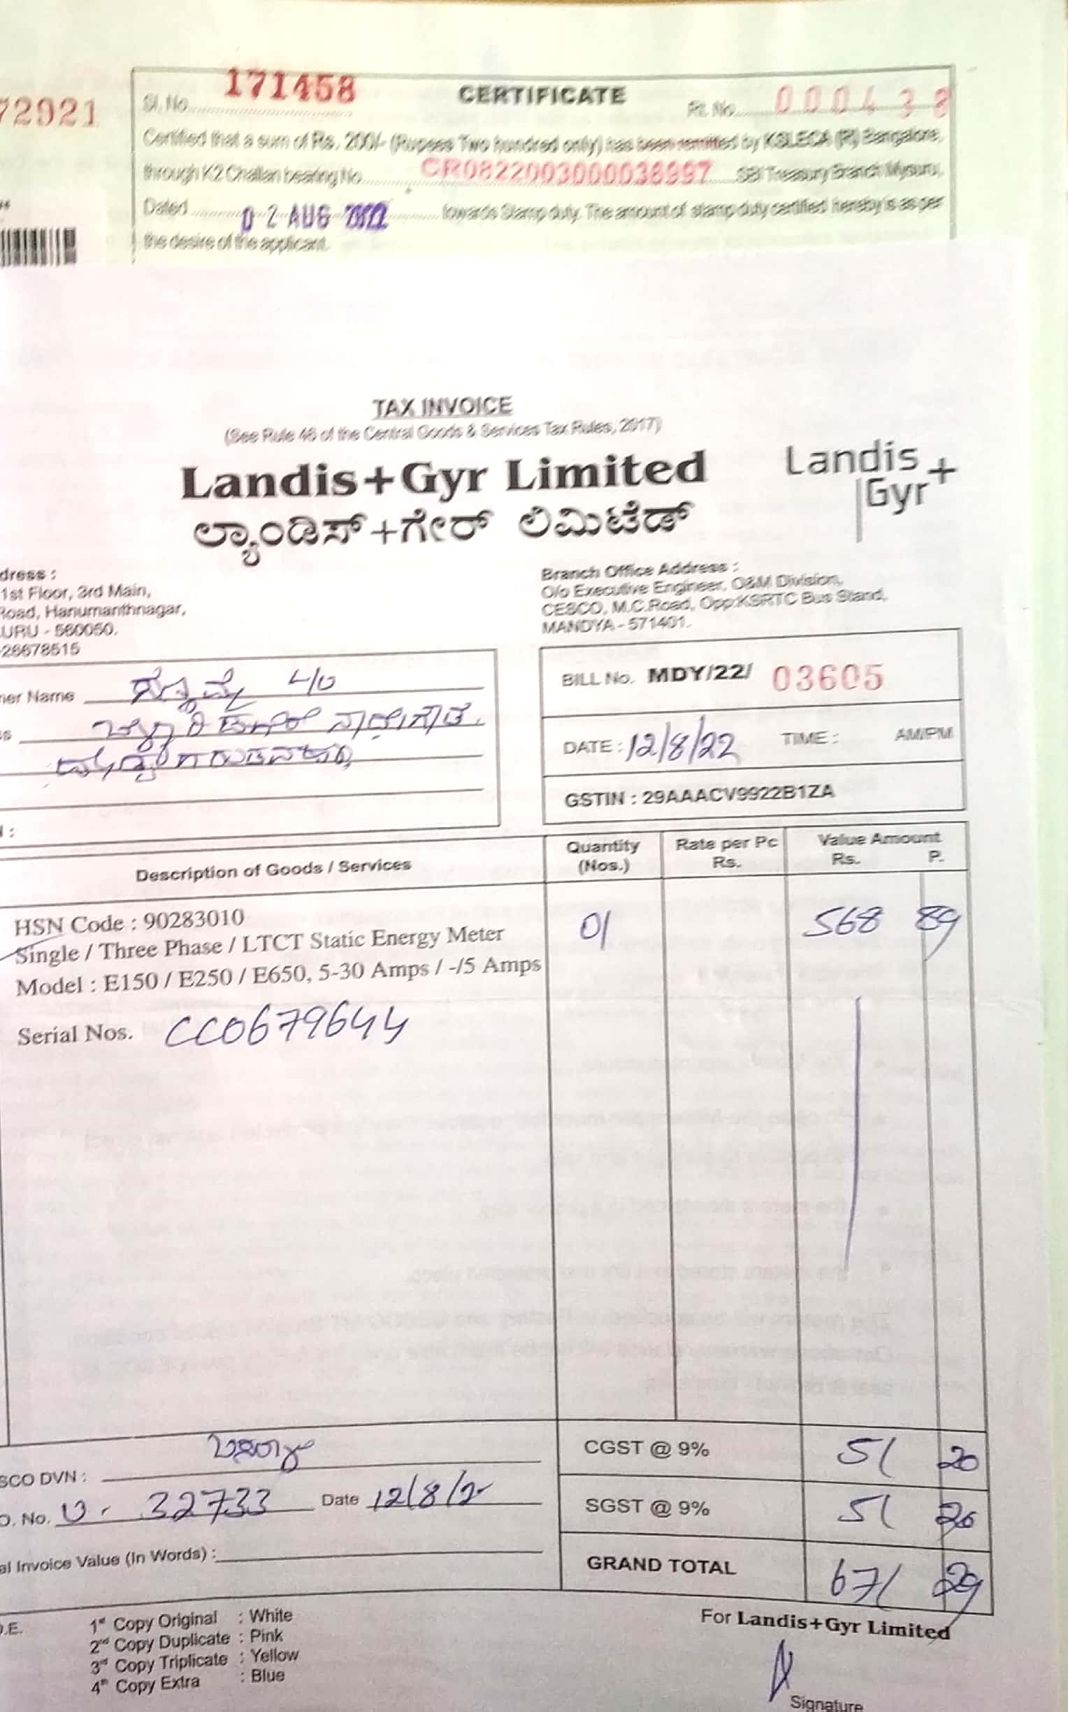 72921
Sl. No. 171458 CERTIFICATE Rl. No. 000438
Certified that a sum of Rs. 200/- (Rupees Two hundred only) has been remitted by KSLECA (R) Bangalore,
through K2 Challan bearing No. CR0822003000036997 SBI Treasury Branch Mysuru,
Dated 02 AUG 2022 towards Stamp duty. The amount of stamp duty certified hereby is as per
the desire of the applicant.
TAX INVOICE
(See Rule 46 of the Central Goods & Services Tax Rules, 2017)
Landis+Gyr Limited
Landis+
Gyr
ಲ್ಯಾಂಡಿಸ್+ಗೇರ್ ಲಿಮಿಟೆಡ್
dress :
1st Floor, 3rd Main,
Road, Hanumanthnagar,
URU - 560050.
26678515
Branch Office Address :
O/o Executive Engineer, O&M Division,
CESCO, M.C.Road, Opp:KSRTC Bus Stand,
MANDYA - 571401.
er Name
BILL No. MDY/22/ 03605
DATE : 12/8/22 TIME : AM/PM
GSTIN : 29AAACV9922B1ZA
Description of Goods / Services Quantity (Nos.) Rate per Pc Rs. Value Amount Rs. P.
HSN Code : 90283010 01 568 89
Single / Three Phase / LTCT Static Energy Meter
Model : E150 / E250 / E650, 5-30 Amps / -/5 Amps
Serial Nos. CC0679644
CGST @ 9% 51 20
SCO DVN :
SGST @ 9% 51 20
O. No. 32733 Date 12/8/2
al Invoice Value (In Words) :
GRAND TOTAL 671 29
.E.
1st Copy Original : White
2nd Copy Duplicate : Pink
3rd Copy Triplicate : Yellow
4th Copy Extra : Blue
For Landis+Gyr Limited
Signature